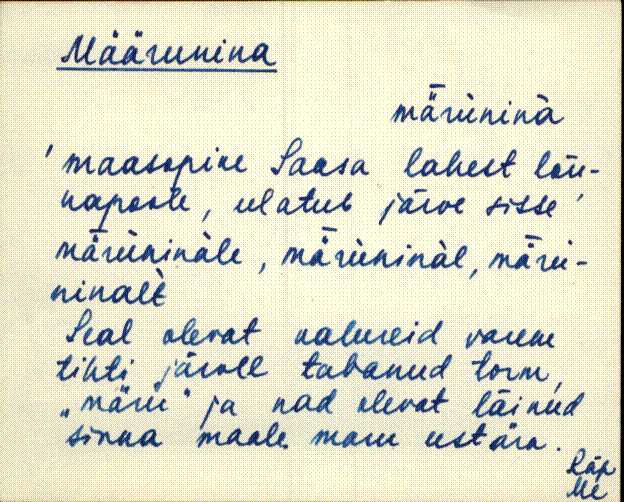 Määrunina
mǟŕuninà
' maasopike Saasa lahest lõu-
napoole, ulatub järve sisse '
mǟŕuninàle, mǟŕuninàl, mǟŕu-
ninalt̀
Seal olevat kalureid varem
tihti järvel tabanud torm,
„mäŕu" ja nad olevat läinud
sinna maale maru eest ära.
Räp
Me